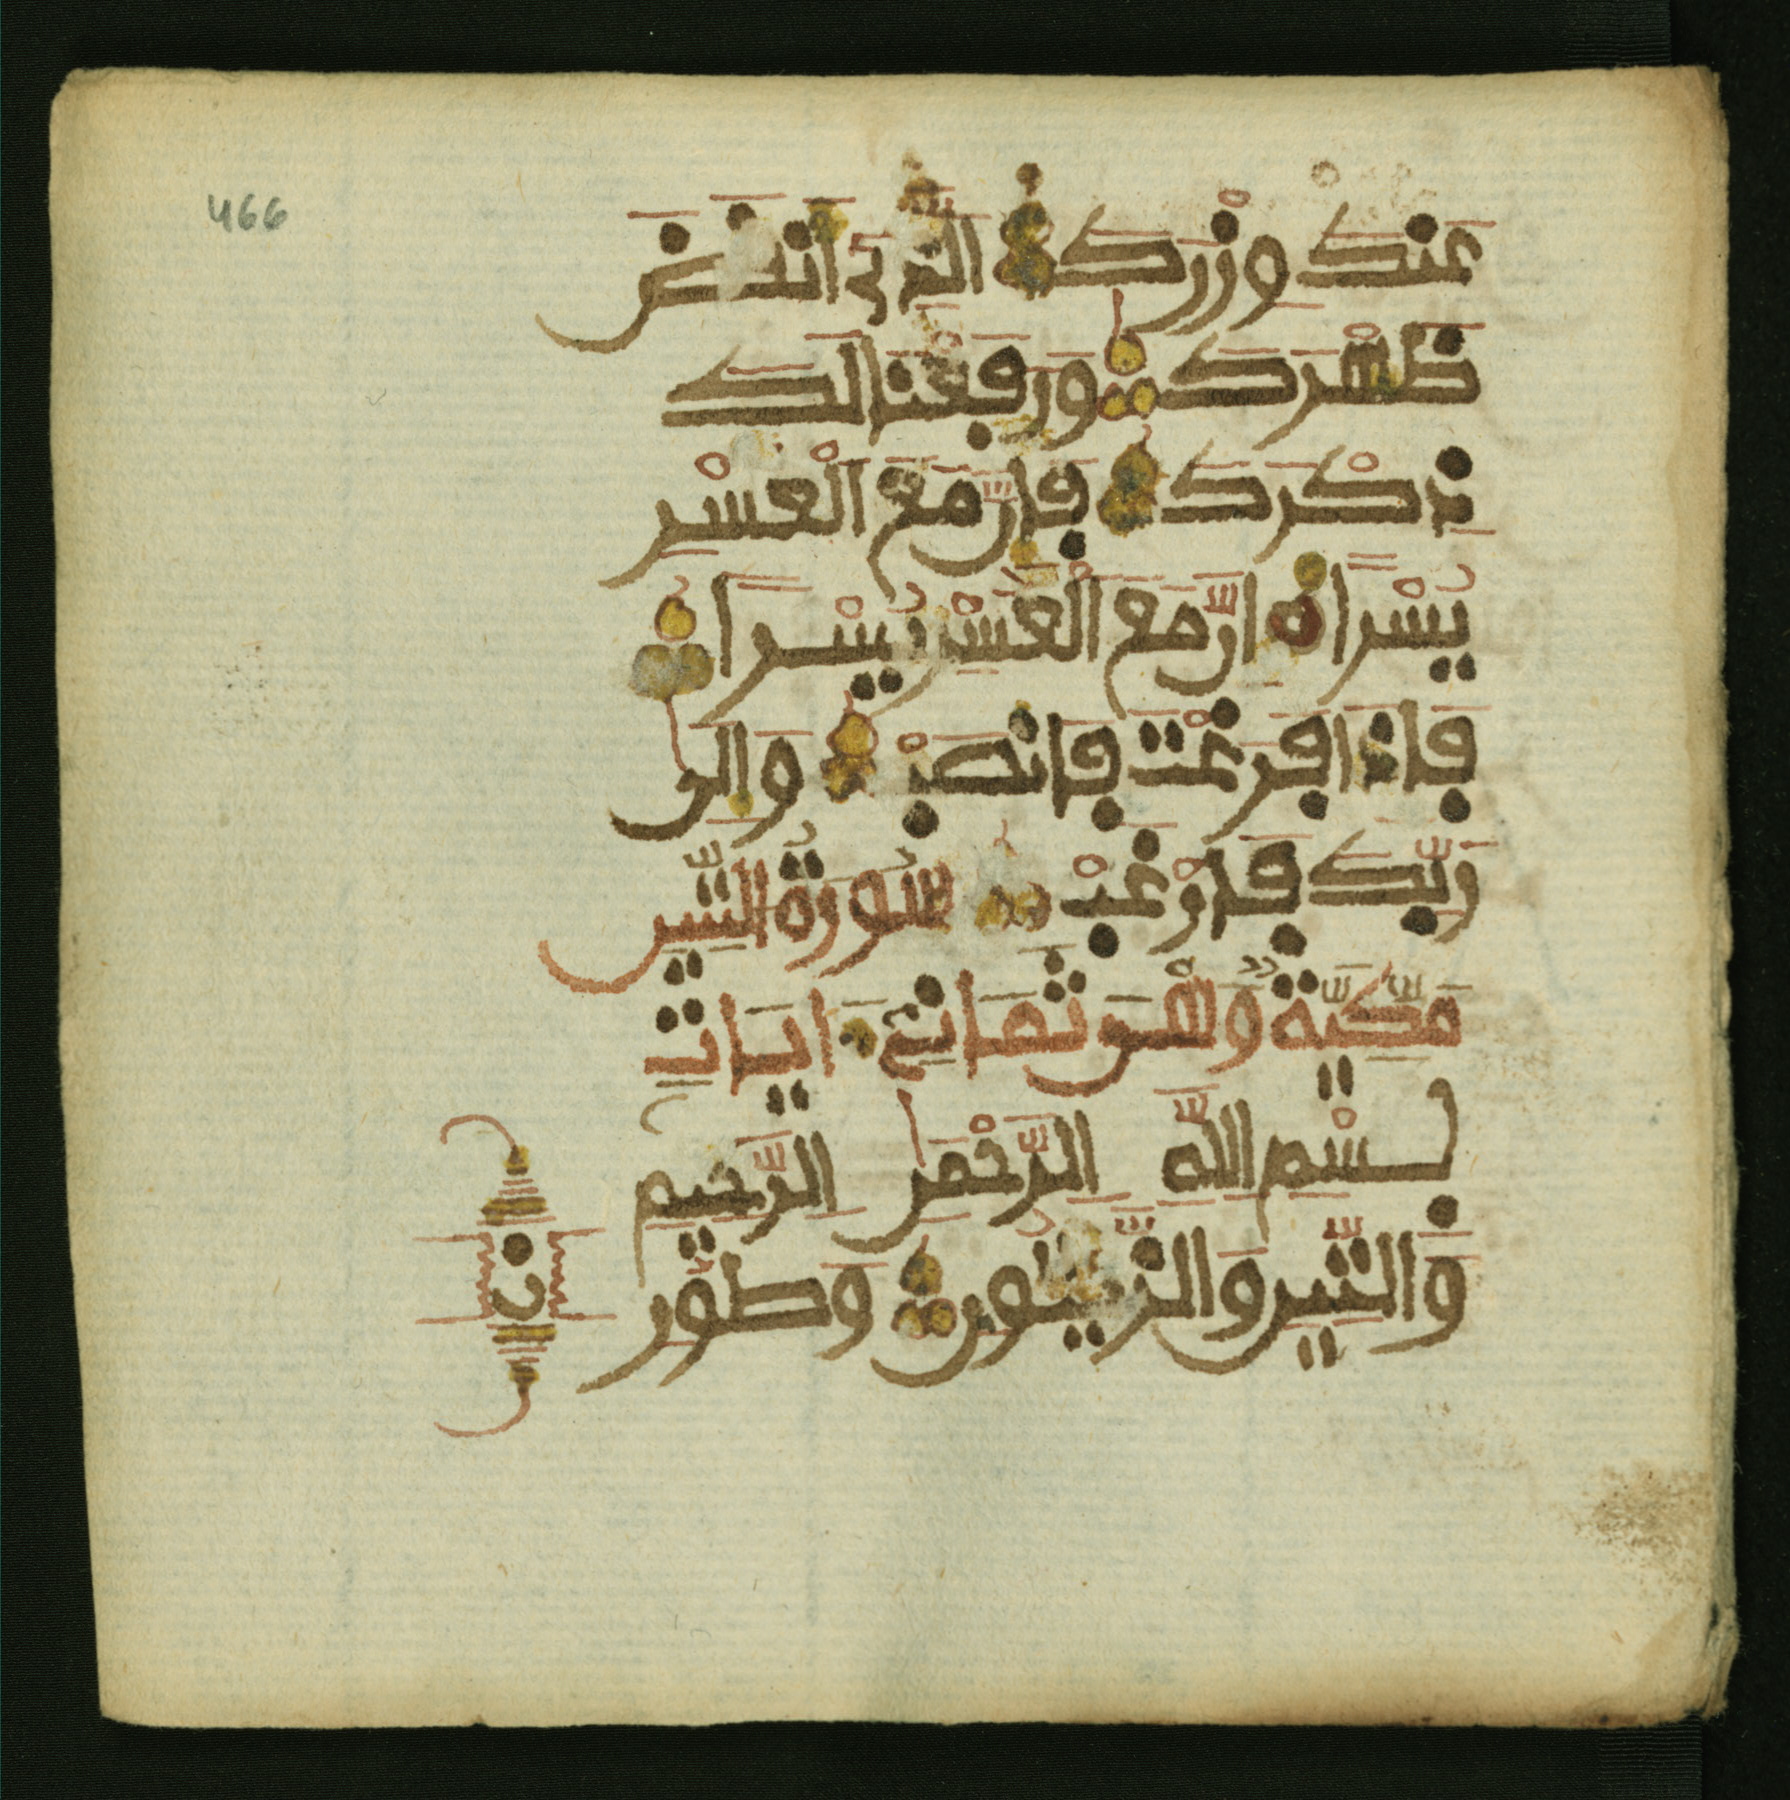 466
عَنكَ وِزْرَكَ الَّذِى أَنقَضَ
ظَهْرَكَ وَرَفَعْنَا لَكَ
ذِكْرَكَ فَإِنَّ مَعَ الْعُسْرِ
يُسْرًا إِنَّ مَعَ الْعُسْرِ يُسْرًا
فَإِذَا فَرَغْتَ فَانصَبْ وَإِلَى
رَبِّكَ فَارْغَبْ سُورَةُ التِّينِ
مَكِّيَّةٌ وَهْىَ ثَمَانِىَ ايَاتٍ
بِسْمِ اللَّهِ الرَّحْمَٰنِ الرَّحِيمِ
وَالتِّينِ وَالزَّيْتُونِ وَطُورِ
ن